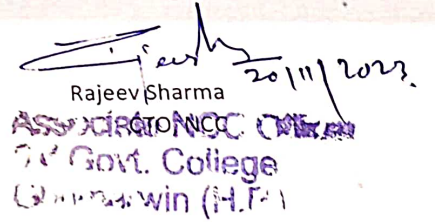 Rajeev
20/11/2023
Rajeev Sharma
CTO NCC
Associate NCC Officer
Govt. College
win (H.P.)